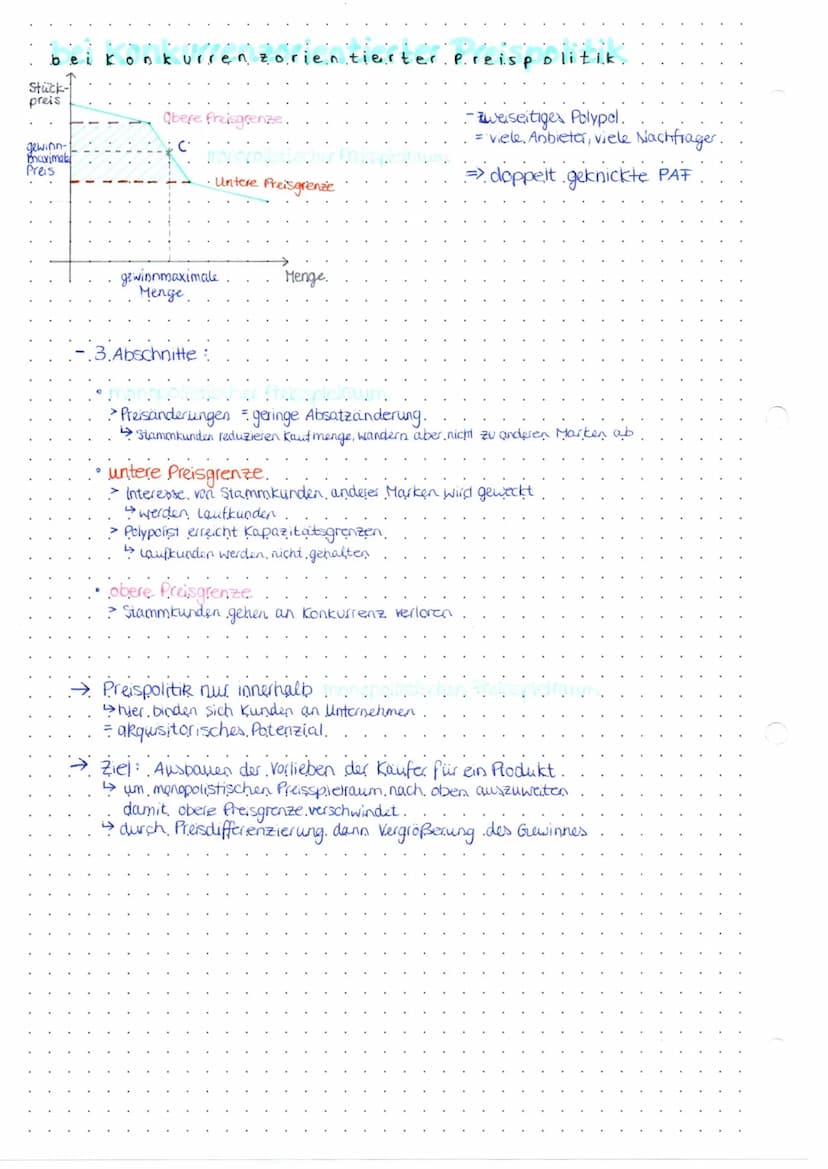 bei konkurrenzorientierter Preispolitik
Stück-
preis
Obere Preisgrenze
gewinn-
maximale
Preis
C
monopolistischer Preisspielraum
Untere Preisgrenze
gewinnmaximale
Menge
Menge
- zweiseitiges Polypol
= viele Anbieter, viele Nachfrager
⇒ doppelt geknickte PAF
- 3 Abschnitte:
• monopolistischer Preisspielraum
> Preisänderungen = geringe Absatzänderung
↳ Stammkunden reduzieren Kaufmenge, wandern aber nicht zu anderen Marken ab
• untere Preisgrenze
> Interesse von Stammkunden anderer Marken wird geweckt
↳ werden Laufkunden
> Polypolist erreicht Kapazitätsgrenzen
↳ Laufkunden werden nicht gehalten
• obere Preisgrenze
> Stammkunden gehen an Konkurrenz verloren
→ Preispolitik nur innerhalb monopolistischen Preisspielraum
↳ hier binden sich Kunden an Unternehmen
= akqusitorisches Potenzial
→ Ziel: Ausbauen der Vorlieben der Käufer für ein Produkt
↳ um monopolistischen Preisspielraum nach oben auszuweiten
damit obere Preisgrenze verschwindet
↳ durch Preisdifferenzierung dann Vergrößerung des Gewinnes